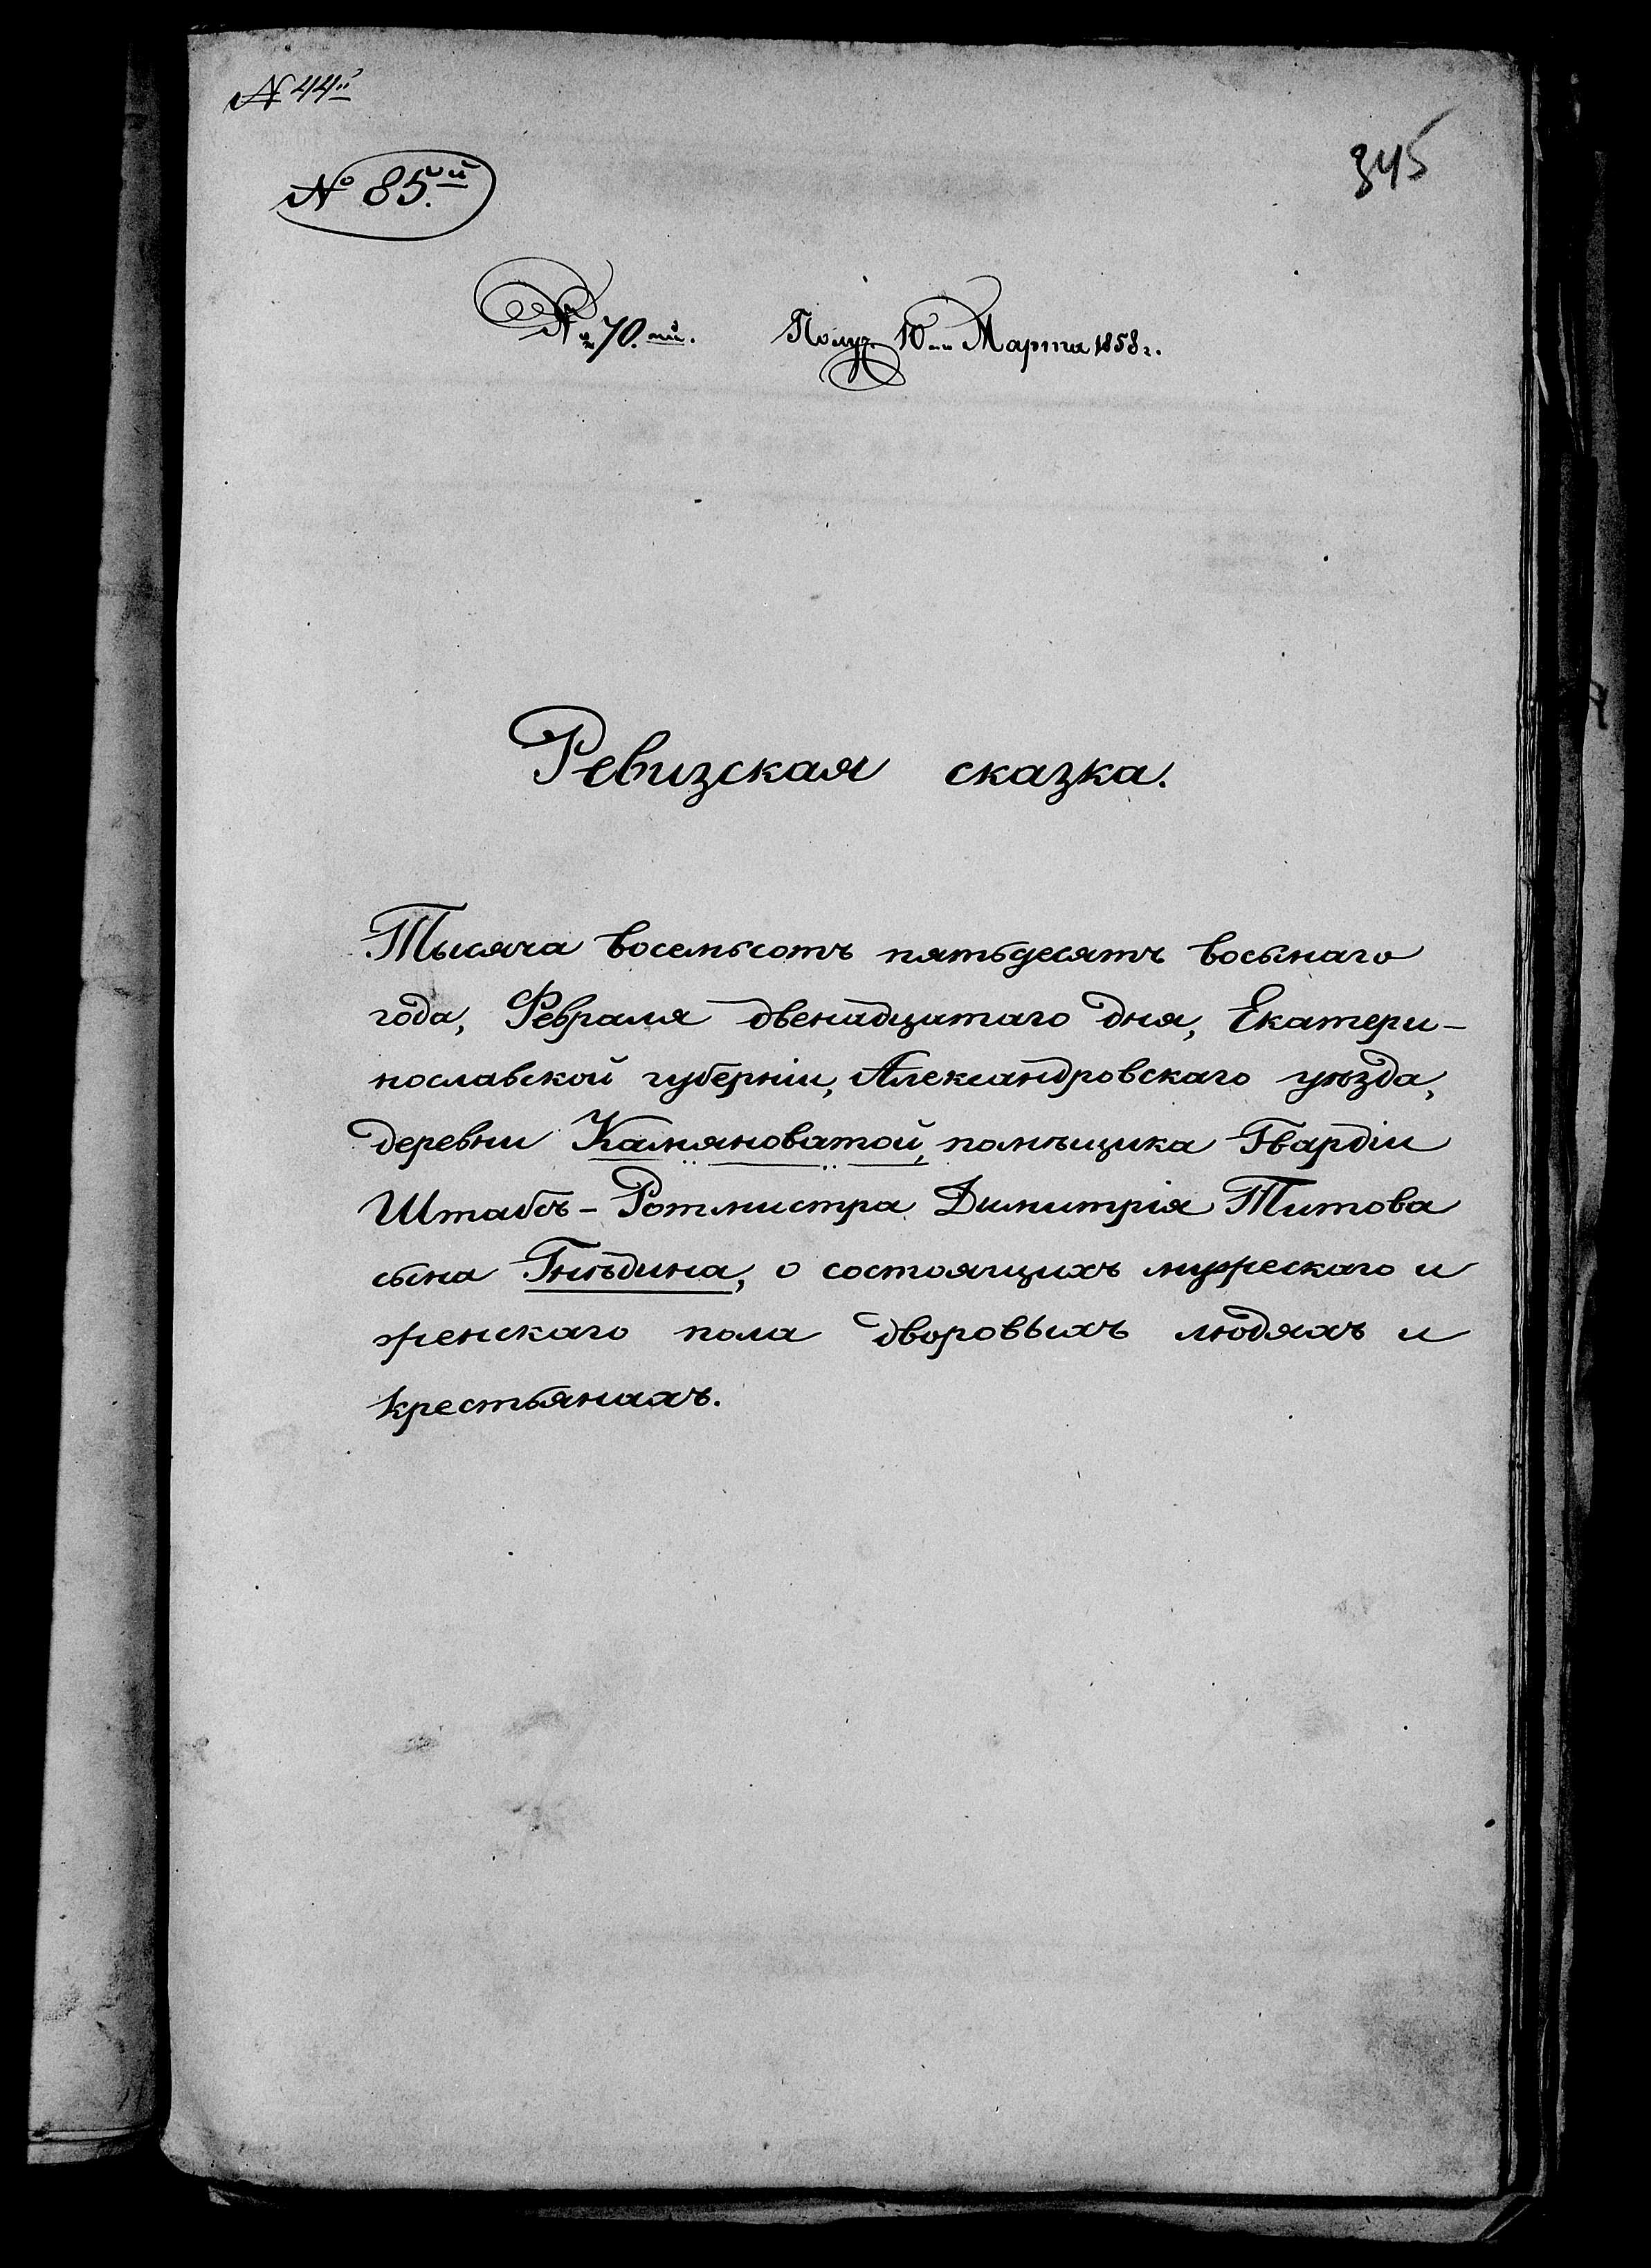 № 44й
345
№ 85.й
№ 70.тый. Получ. 10го Марта 1858 г.
Ревизская сказка.
Тысяча восемьсотъ пятьдесятъ восьмаго
года, Февраля двенадцатаго дня, Екатери-
нославской губерніи, Александровскаго уѣзда,
деревни Камяноватой, помѣщика Гвардіи
Штабъ-Ротмистра Димитрія Титова
сына Гнѣдина, о состоящихъ мужескаго и
женскаго пола дворовыхъ людяхъ и
крестьянахъ.